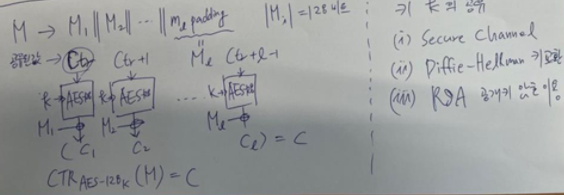 M → M₁ || M₂ || ⋯ || m_ℓ padding |Mᵢ| = 128비트
공유된값 → Ctr Ctr+1 M_ℓ Ctr+ℓ-1
k → AES암호 k → AES암호 ⋯ k → AES암호
M₁ → ⊕ M₂ → ⊕ M_ℓ → ⊕
( C₁ C₂ C_ℓ ) = C
CTR AES-128_k (M) = C
키 k의 공유
(i) Secure Channel
(ii) Diffie-Hellman 키교환
(iii) RSA 공개키 암호 이용